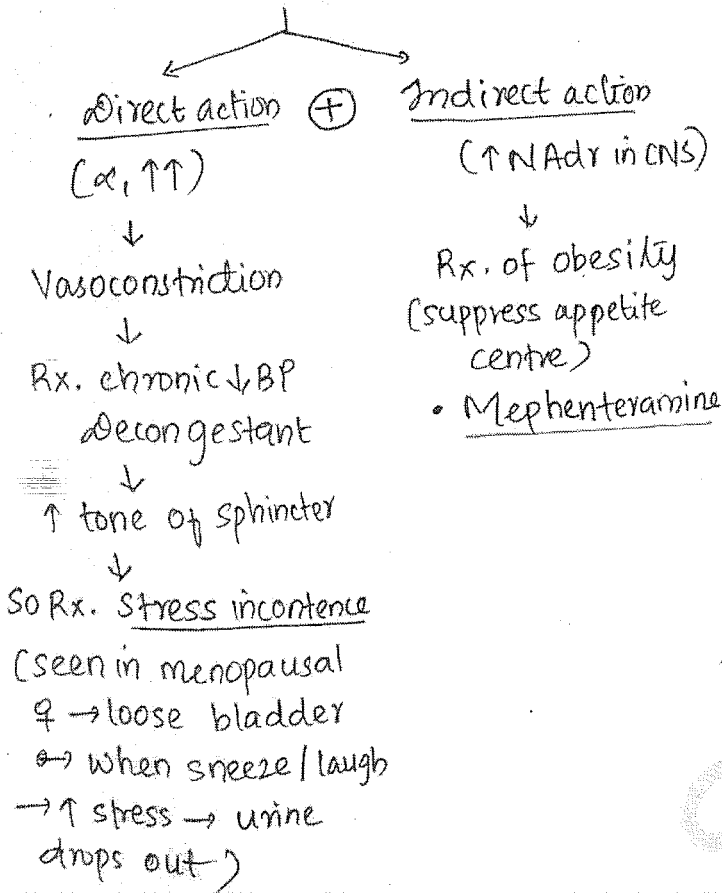 Direct action ⊕
(α₁ ↑↑)
↓
Vasoconstriction
↓
Rx. chronic ↓ BP
Decongestant
↓
↑ tone of sphincter
↓
So Rx. Stress incontence
(seen in menopausal
♀ → loose bladder
↔ when sneeze/laugh
→ ↑ stress → urine
drops out)
Indirect action
(↑ NAdr in CNS)
↓
Rx. of obesity
(suppress appetite
centre)
• Mephenteramine